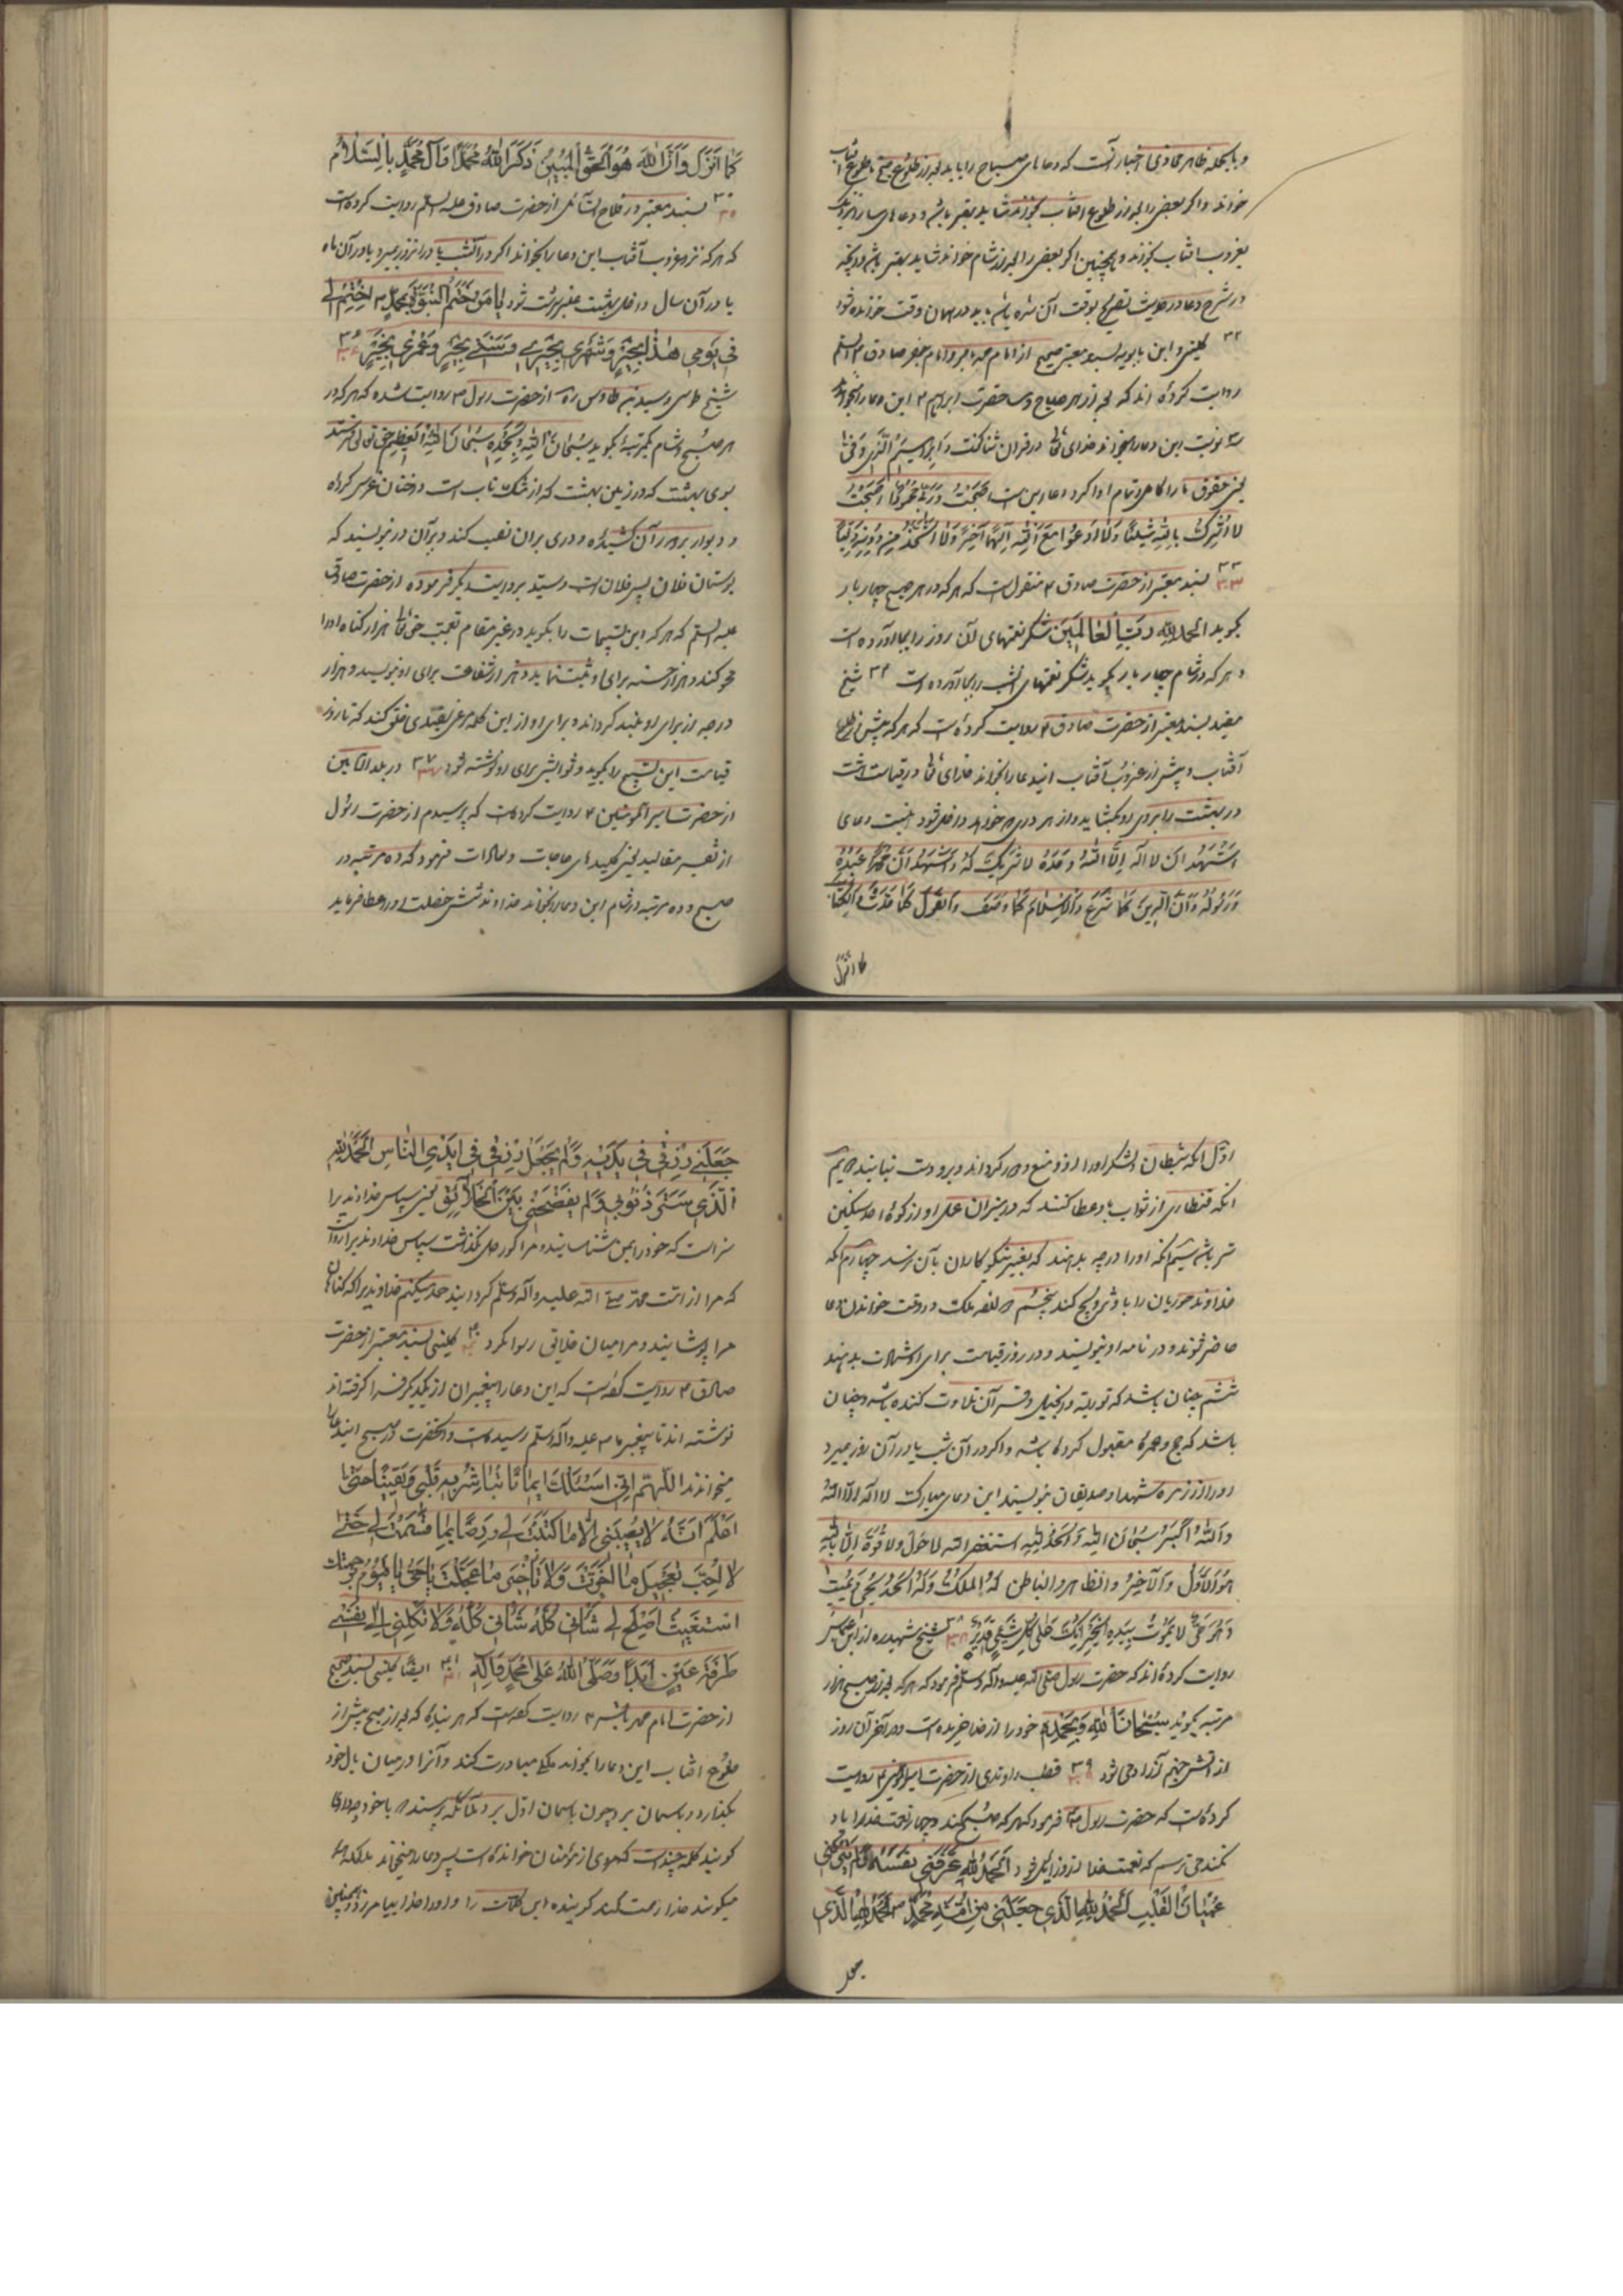 و بالجمله ظاهر فحاوی اخبار آنست که دعاهای صباح را باید بعد از طلوع صبح تا طلوع آفتاب
خواند و اگر بعضی را بعد از طلوع آفتاب بخواند شاید بهتر باشد و دعاهای مسا را نزدیک
بغروب آفتاب بخواند و همچنین اگر بعضی را بعد از شام خواند شاید بهتر باشد و آنچه
در شرح دعا در حدیث تصریح بوقت آن شده باشد باید در همان وقت خوانده شود
۳۲ کلینی و ابن بابویه بسند معتبر صحیح از امام محمد باقر و امام جعفر صادق ع
روایت کرده اند که بعد از هر صباح و مسا حضرت ابراهیم ع این دعا را میخواند
سه نوبت این دعا را میخواند خدای تعالی در قرآن ثنا گفت و ابراهیم الذی وفی
یعنی حقوق ما را کامل و تمام ادا کرد دعا این است اصبحت و ربی محمودا اصبحت
لا اشرک بالله شیئا و لا ادعوا مع الله الها آخر و لا اتخذ من دونه ولیا
۳۳ بسند معتبر از حضرت صادق ع منقول است که هر که در هر صبح چهار بار
بگوید الحمد لله رب العالمین شکر نعمتهای آن روز را بجا آورده است
و هر که در شام چهار بار بگوید شکر نعمتهای آنشب را بجا آورده است ۳۴ شیخ
مفید بسند معتبر از حضرت صادق ع روایت کرده است که هر که پیش از طلوع
آفتاب و پیش از غروب آفتاب این دعا را بخواند خدای تعالی در قیامت هشت
در بهشت را بر روی او بگشاید و از هر دری که خواهد داخل شود اینست دعای
اشهد ان لا اله الا الله وحده لا شریک له و اشهد ان محمدا عبده
و رسوله و ان الدین کما شرع و الاسلام کما وصف و القول کما حدث و الکتاب
کما انزل
کما انزل و ان الله هو الحق المبین ذکر الله محمدا و آل محمد بالسلام
۳۵ بسند معتبر در فلاح السائل از حضرت صادق علیه السلم روایت کرده است
که هر که نزد غروب آفتاب این دعا را بخواند اگر در آنشب یا در آنروز بمیرد یا در آن ماه
یا در آن سال داخل بهشت عنبر سرشت شود یا من ختم النبوة بمحمد ص اختم لی
فی یومی هذا بخیر و شهری بخیر و سنتی بخیر و عمری بخیر ۳۶
شیخ طوسی و سید ابن طاوس ره از حضرت رسول ص روایت شده که هر که در
هر صبح و شام یکمرتبه بگوید سبحان الله و بحمده سبحان الله العظیم حق تعالی بفرستد
بسوی بهشت که در زمین بهشت که از مشک ناب است درختان غرس کرده
و دیوار بر دور آن کشیده و دری بر آن نصب کند و بر آن در بنویسند که
بوستان فلان پسر فلان است و سید بروایت دیگر فرموده از حضرت صادق
علیه السلم که هر که این تسبیحات را بگوید در غیر مقام تعجب حق تعالی هزار گناه او را
محو کند و هزار حسنه برای او ثبت نماید و هزار شفاعت برای او بنویسد و هزار
درجه از برای او بلند گرداند و برای او از این کلمه مرغ سفیدی خلق کند که تا روز
قیامت این تسبیح را بگوید و ثوابش برای او نوشته شود ۳۷ در بلد الامین
از حضرت امیر المؤمنین ع روایت کرده است که پرسیدم از حضرت رسول
از تفسیر مقالید یعنی کلیدهای حاجات و مرادات فرمود که ده مرتبه در
صبح و ده مرتبه در شام این دعا را بخواند خداوند شش خصلت او را عطا فرماید
اول آنکه شیطان و لشکر او را از او منع و دور گرداند و بر او دست نیابند دویم
آنکه قنطاری از ثواب باو عطا کنند که در میزان عمل او از کوه احد سنگین
تر باشد سیم آنکه او را درجه بدهند که بغیر نیکوکاران بآن نرسد چهارم آنکه
خداوند حوریان را باو تزویج کند پنجم دوازده ملک در وقت خواندن دعا
حاضر شوند و در نامه او بنویسند و در روز قیامت برای او شهادت بدهند
ششم چنان باشد که توریة و انجیل و قرآن تلاوت کننده باشد و چنان
باشد که حج و عمره مقبول کرده باشد و اگر در آن شب یا در آن روز بمیرد
او را از زمره شهدا و صدیقان بنویسند این دعای مبارکست لا اله الا الله
و الله اکبر سبحان الله و الحمد لله استغفر الله لا حول و لا قوة الا بالله
هو الاول و الآخر و الظاهر و الباطن له الملک و له الحمد یحیی و یمیت
و هو حی لا یموت بیده الخیر انک علی کل شیء قدیر ۳۸ شیخ شهید ره از ابن عباس
روایت کرده اند که حضرت رسول صلی الله علیه و آله و سلم فرمود که هر که بعد از صبح هزار
مرتبه بگوید سبحان الله و بحمده خود را از خدا خریده است و در آخر آن روز
از آتش جهنم آزاد می شود ۳۹ قطب راوندی از حضرت امیر المؤمنین ع روایت
کرده است که حضرت رسول ص فرمود که هر که صبح کند و چهار نعمت خدا را یاد
نکند می ترسم که نعمت خدا از او زایل شود الحمد لله عرفنی نفسه و لم یترکنی
عمیان القلب الحمد لله الذی جعلنی من امة محمد ص الحمد لله الذی
جعل
جعلنی رزقی فی یدیه و لم یجعل رزقی فی ایدی الناس الحمد لله
الذی ستر ذنوبی و لم یفضحنی بین الخلائق یعنی سپاس خداوند را
سزاست که خود را بمن شناسانید و مرا کور دل نگذاشت سپاس خداوندی را سزاست
که مرا از امت محمد صلی الله علیه و آله و سلم گردانید حمد میکنم خداوندیرا که گناهان
مرا پوشانید و مرا میان خلایق رسوا نکرد ۴۰ کلینی بسند معتبر از حضرت
صادق ع روایت کرده است که این دعا را پیغمبران از یکدیگر فرا گرفته اند
نوشته اند تا پیغمبر ما ص علیه و آله و سلم رسیده است و آنحضرت در صبح این دعا را
میخواندند اللهم انی اسئلک ایمانا تباشر به قلبی و یقینا حتی
اعلم انه لا یصیبنی الا ما کتبت لی و رضا بما قسمت لی حتی
لا احب تعجیل ما اخرت و لا تأخیر ما عجلت یا حی یا قیوم برحمتک
استغیث اصلح لی شانی کله و لا تکلنی الی نفسی
طرفة عین ابدا و صلی الله علی محمد و آله ۴۱ ایضا کلینی بسند صحیح
از حضرت امام محمد باقر ع روایت کرده است که هر بنده که بعد از صبح پیش از
طلوع آفتاب این دعا را بخواند ملکی مبادرت کند و آنرا در میان بال خود
بگذارد و بآسمان برد چون بآسمان اول برد ملائکه پرسند که با خود چه داری
گوید کلمه چند است که مردی از مؤمنان خوانده است پس دعا را میخواند ملائکه
میگویند خدا رحمت کند گوینده این کلمات را و او را خدا بیامرزد و همچنین